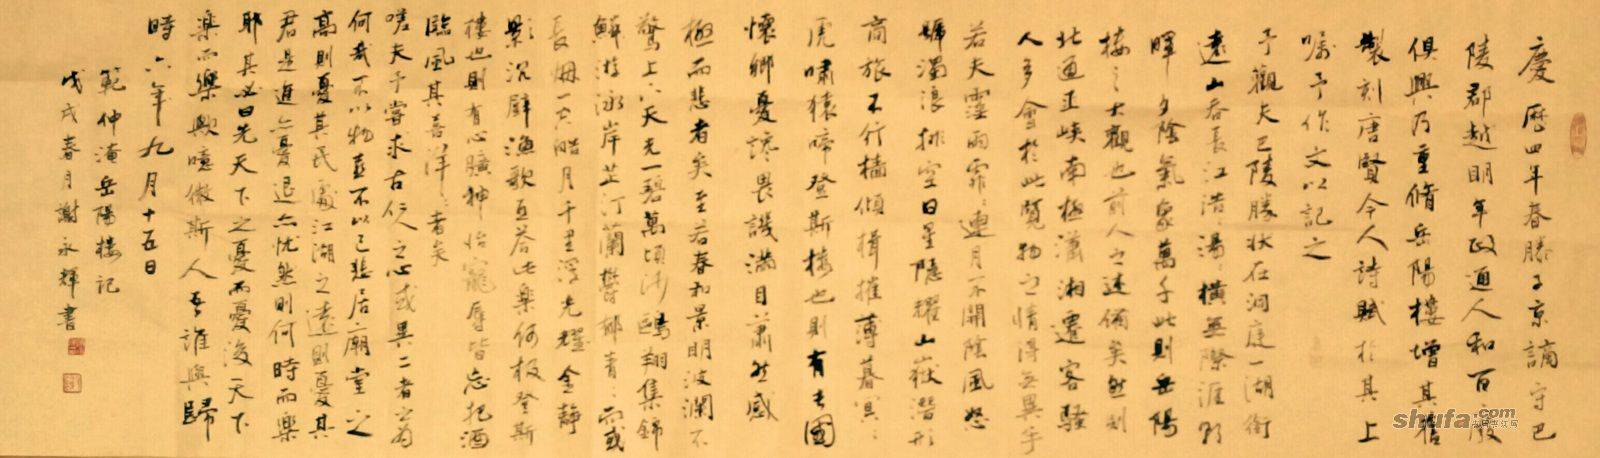 慶歷四年春滕子京謫守巴
陵郡越明年政通人和百廢
俱興乃重脩岳陽樓增其舊
製刻唐賢今人詩賦於其上
囑予作文以記之
予觀夫巴陵勝狀在洞庭一湖銜
遠山吞長江浩浩湯湯橫無際涯朝
暉夕陰氣象萬千此則岳陽
樓之大觀也前人之述備矣然則
北通巫峽南極瀟湘遷客騷
人多會於此覽物之情得無異乎
若夫霪雨霏霏連月不開陰風怒
號濁浪排空日星隱耀山嶽潛形
商旅不行檣傾楫摧薄暮冥冥
虎嘯猿啼登斯樓也則有去國
懷鄉憂讒畏譏滿目蕭然感
極而悲者矣至若春和景明波瀾不
驚上下天光一碧萬頃沙鷗翔集錦
鱗游泳岸芷汀蘭鬱郁青青而或
長烟一空皓月千里浮光耀金靜
影沉璧漁歌互答此樂何极登斯
樓也則有心曠神怡寵辱皆忘把酒
臨風其喜洋洋者矣
嗟夫予嘗求古仁人之心或異二者之為
何哉不以物喜不以己悲居廟堂之
高則憂其民處江湖之遠則憂其
君是進亦憂退亦忧然則何時而樂
耶其必曰先天下之憂而憂後天下
樂而樂歟噫微斯人吾誰與歸
時六年九月十五日
範仲淹岳陽樓記
戊戌春月謝永輝書
shufa.com